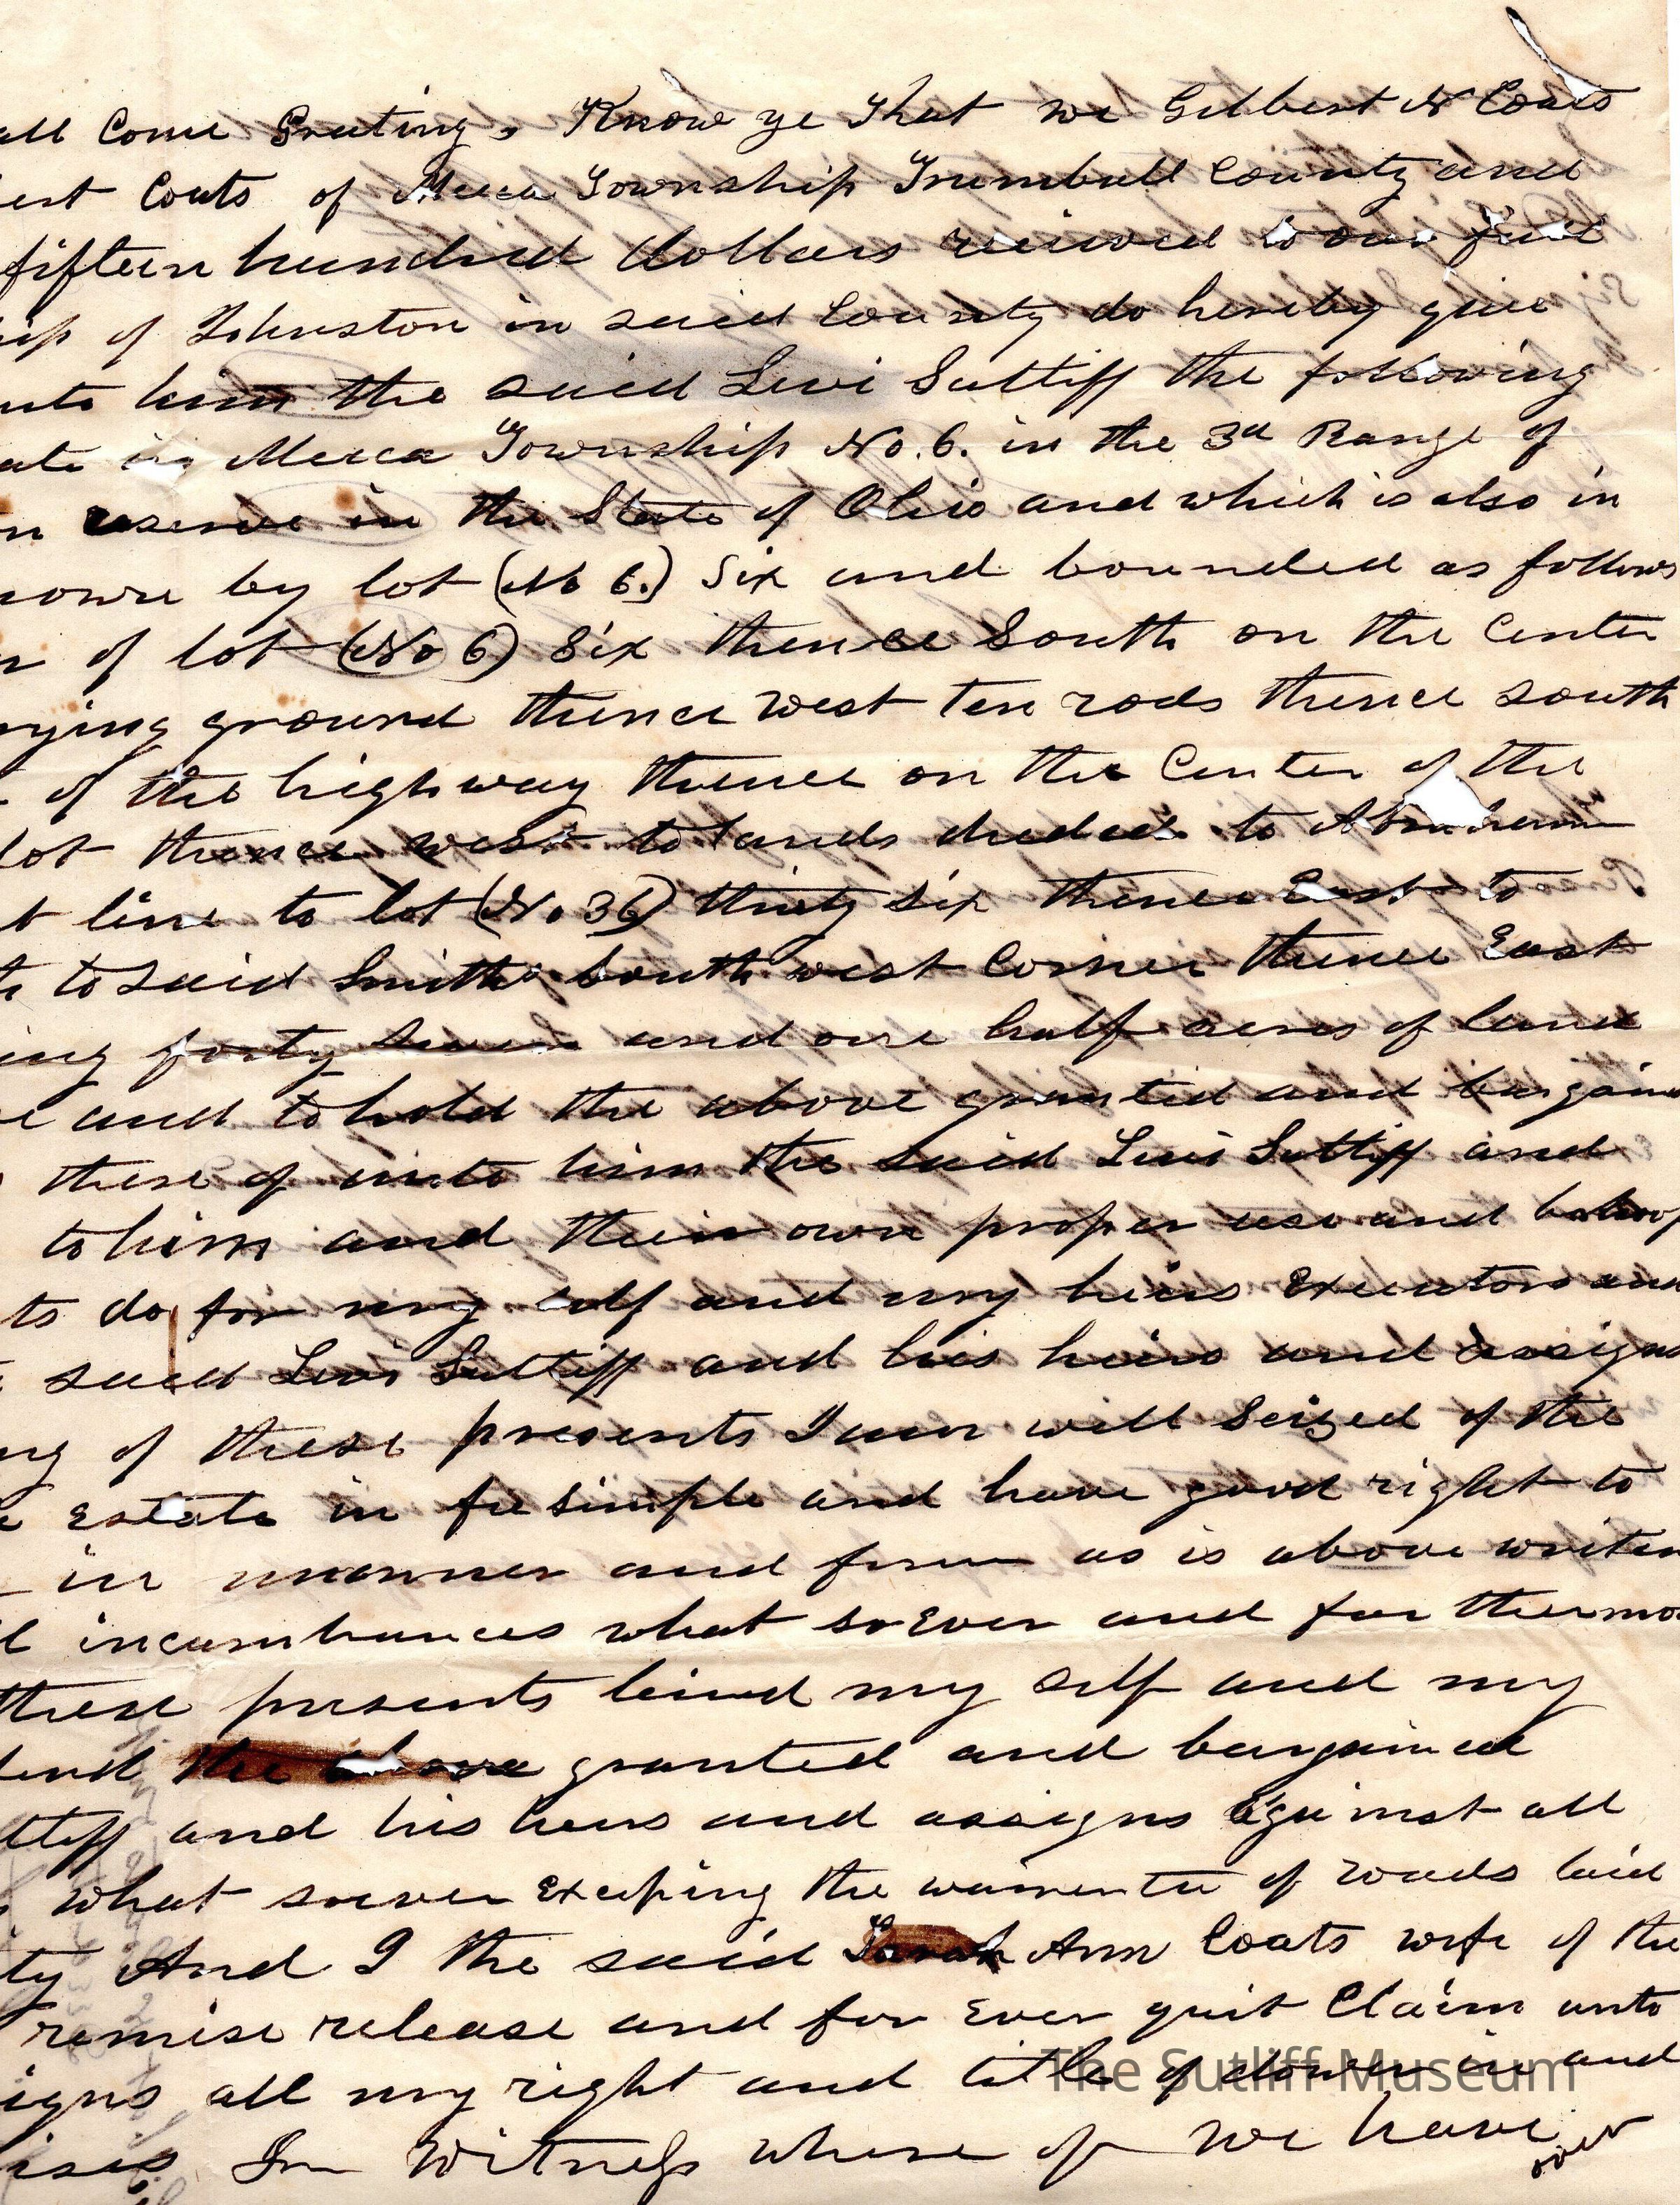 all Come Greeting, Know ye that we Gilbert N Coats
est Coats of Mecca Township Trumbull County and
fifteen hundred dollars received to our full
hip of Johnston in said County do hereby give
nto him the said Levi Sutliff the following
ate in Mecca Township No. 6. in the 3d Range of
n reserve in the State of Ohio and which is also in
nown by lot (No 6.) Six and bounded as follows
r of lot (No 6) Six thence South on the Center
rying ground thence west ten rods thence south
of the highway thence on the Center of the
lot thence west to lands deeded to Abraham
t line to lot (No 36) thirty six thence East to
h to said Smiths South west Corner thence East
ing forty seven and one half acres of land
e and to hold the above granted and bargaine
there of unto him the said Levi Sutliff and
to him and their own proper use and behoof
ts do for my self and my heirs Executors and
said Levi Sutliff and his heirs and assigns
ng of these presents I am well Seized of the
e Estate in fee simple and have good right to
in manner and form as is above writen
l incumbrances what so Ever and for thermo
these presents bind my self and my
fend the above granted and bargained
tliff and his heirs and assigns against all
what soever Exceping the of roads laid
ty And I the said Sarah Ann Coats wife of the
remise release and for Ever quit Claim unto
igns all my right and title of dower in and
ises In Witness where of we have
over
The Sutliff Museum